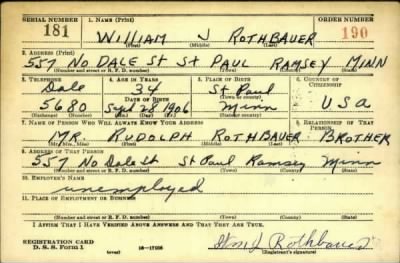 SERIAL NUMBER 1. NAME (Print) ORDER NUMBER
181 WILLIAM J ROTHBAUER 190
(First) (Middle) (Last)
2. ADDRESS (Print)
557 NO DALE ST ST PAUL RAMSEY MINN
(Number and street or R. F. D. number) (Town) (County) (State)
3. TELEPHONE 4. AGE IN YEARS 5. PLACE OF BIRTH 6. COUNTRY OF CITIZENSHIP
Dale 34 St Paul
DATE OF BIRTH (Town or county)
5680 Sept 28 1906 Minn USA
(Exchange) (Number) (Mo.) (Day) (Yr.) (State or country)
7. NAME OF PERSON WHO WILL ALWAYS KNOW YOUR ADDRESS 8. RELATIONSHIP OF THAT PERSON
MR. RUDOLPH ROTHBAUER BROTHER
(Mr., Mrs., Miss) (First) (Middle) (Last)
9. ADDRESS OF THAT PERSON
557 No Dale St St Paul Ramsey Minn
(Number and street or R. F. D. number) (Town) (County) (State)
10. EMPLOYER'S NAME
unemployed
11. PLACE OF EMPLOYMENT OR BUSINESS
(Number and street or R. F. D. number) (Town) (County) (State)
I AFFIRM THAT I HAVE VERIFIED ABOVE ANSWERS AND THAT THEY ARE TRUE.
REGISTRATION CARD
D. S. S. Form 1 16-17105 Wm J Rothbauer
(Registrant's signature)